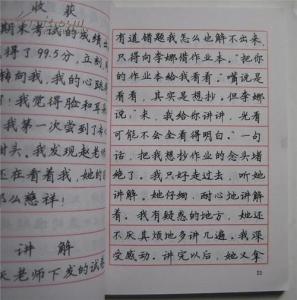 收获
期末考试的成绩出
得了99.5分,立刻,
转向我,我的心跳
!我觉得脸和耳
我第一次尝到了
甜头。我发现赵老师
还在看着我,她的
那么慈祥!
讲解
天老师下发的试卷
有道错题我怎么也解不出来,
只得向李娜借作业本。“把你
的作业本给我看看。”嘴说是
看看,其实是想抄。但李娜
说:“来,我给你讲讲,光看
可能不会全看得明白。”一句
话,把我想抄作业的念头堵
绝了。我只好走过去,听她
讲解。她仔细、耐心地讲解
着。我有疑惑的地方,她还
不厌其烦地多讲几遍。我深
受感动。讲完以后,她又拿
53